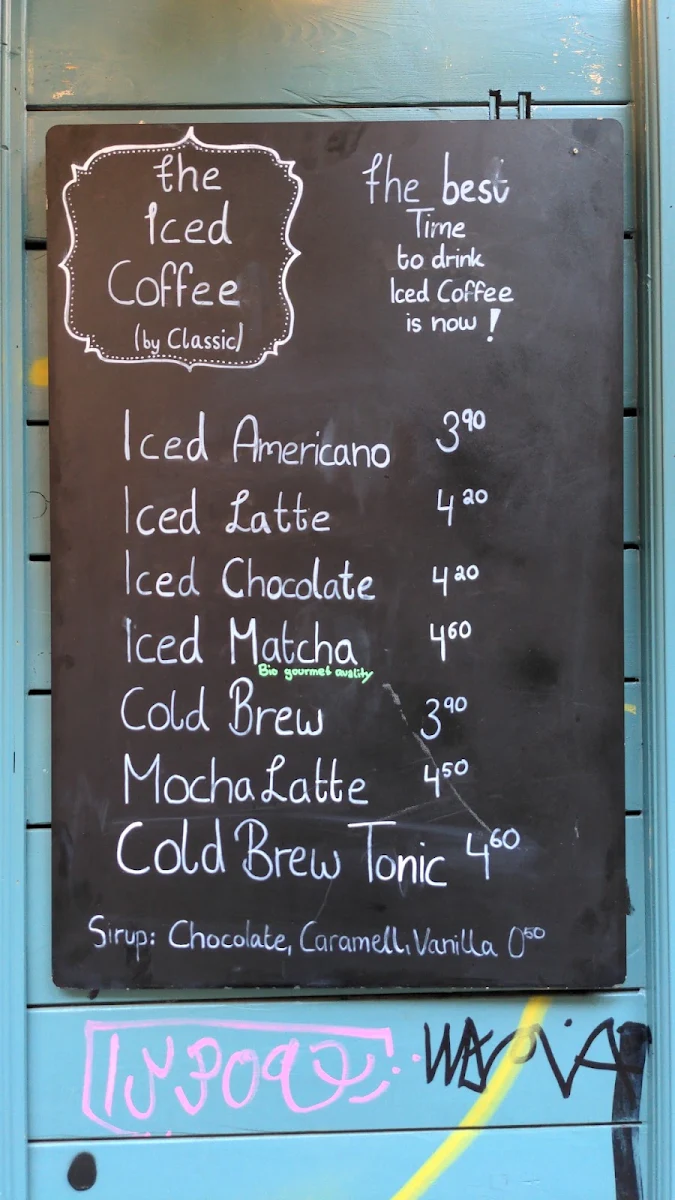 the
Iced
Coffee
(by Classic)
the best
Time
to drink
Iced Coffee
is now!
Iced Americano 390
Iced Latte 420
Iced Chocolate 420
Iced Matcha 460
Bio gourmet quality
Cold Brew 390
Mocha Latte 450
Cold Brew Tonic 460
Sirup: Chocolate, Caramell, Vanilla 050